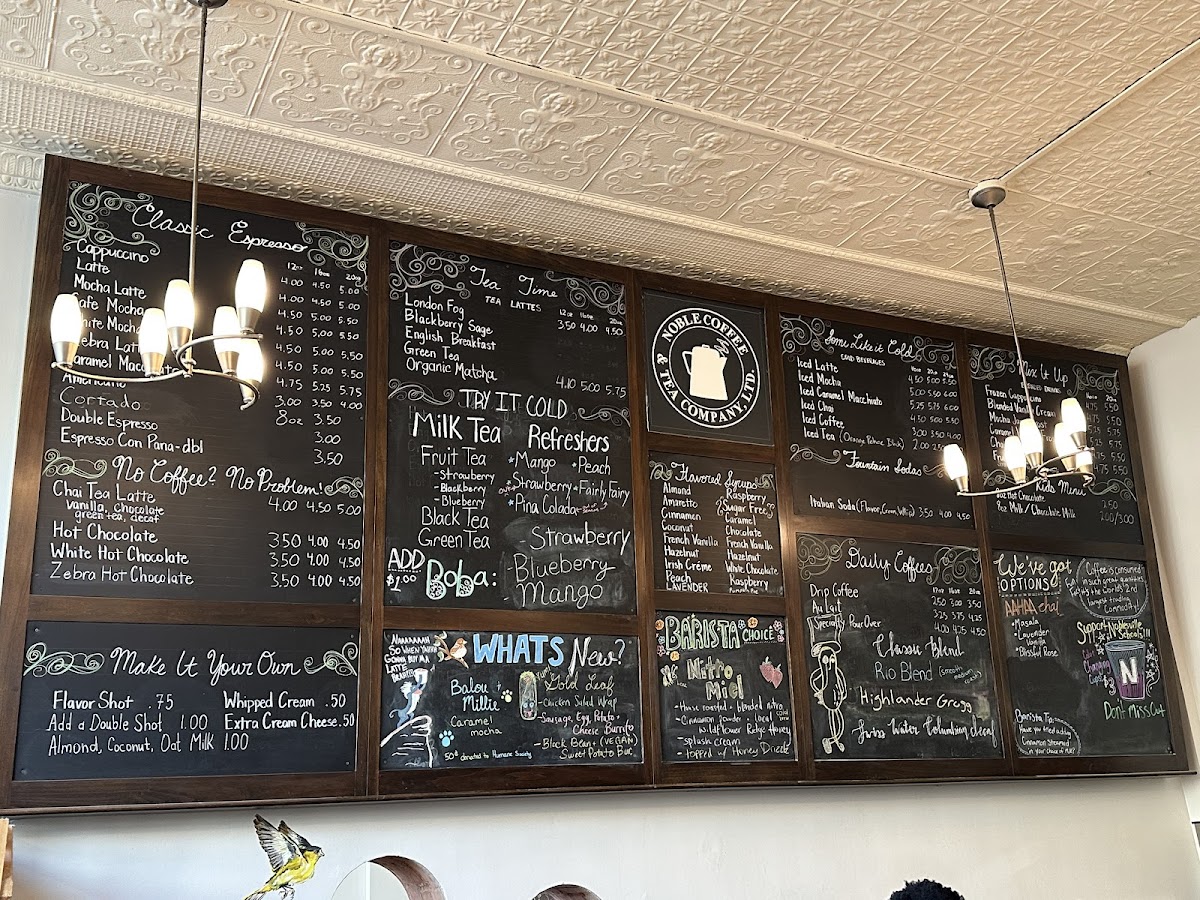 Classic Espresso
12oz 16oz 20oz
Cappuccino 4.00 4.50 5.00
Latte 4.00 4.50 5.00
Mocha Latte 4.50 5.00 5.50
Mocha 4.50 5.00 5.50
Mocha 4.50 5.00 5.50
Latte 4.50 5.00 5.50
Caramel 4.75 5.25 5.75
Americano 3.00 3.50 4.00
Cortado 8oz 3.50
Double Espresso 3.00
Espresso Con Pana-dbl 3.50
No Coffee? No Problem!
Chai Tea Latte 4.00 4.50 5.00
vanilla, chocolate
green tea, decaf
Hot Chocolate 3.50 4.00 4.50
White Hot Chocolate 3.50 4.00 4.50
Zebra Hot Chocolate 3.50 4.00 4.50
Make It Your Own
Flavor Shot .75 Whipped Cream .50
Add a Double Shot 1.00 Extra Cream Cheese .50
Almond, Coconut, Oat Milk 1.00
Tea Time
TEA LATTES
12oz 16oz 20oz
London Fog 3.50 4.00 4.50
Blackberry Sage
English Breakfast
Green Tea
Organic Matcha 4.10 5.00 5.75
TRY IT COLD
Milk Tea
Fruit Tea
-Strawberry
-Blackberry
-Blueberry
Black Tea
Green Tea
Refreshers
*Mango *Peach
*Strawberry *Fairly Fairy
*Pina Colada
ADD $1.00 Boba:
-Strawberry
-Blueberry
-Mango
AAAAAAAH
SO WHEN YOU
GONNA BUY AA
LATTE
WHATS New?
Balou +
Millie
Caramel
mocha
50¢ donated to Humane Society
Gold Leaf
-Chicken Salad Wrap
-Sausage, Egg, Potato +
Cheese Burrito
-Black Bean + (VEGAN)
Sweet Potato Bur.
NOBLE COFFEE
& TEA COMPANY, LTD.
Flavored Syrups
Almond
Amaretto
Cinnamon
Coconut
French Vanilla
Hazelnut
Irish Créme
Peach
LAVENDER
Raspberry
Sugar Free
Caramel
Chocolate
French Vanilla
Hazelnut
White Chocolate
Raspberry
BARISTA CHOICE
Nitro
Miel
- House roasted + blended nitro
- Cinnamon powder + local
wildflower Ridge Honey
-splash cream
-topped w/ Honey Drizzle
Some Like it Cold
COLD BEVERAGES
16oz 20oz
Iced Latte 4.50 5.00 5.50
Iced Mocha 5.00 5.50 6.00
Iced Caramel Macchiato 5.25 5.75 6.00
Iced Chai 4.50 5.00 5.50
Iced Coffee 3.00 3.50 4.00
Iced Tea 2.00
Fountain Sodas
Italian Soda 3.50 4.00 4.50
Daily Coffees
12oz 16oz 20oz
Drip Coffee 2.50 3.00 3.50
Au Lait 3.25 3.75 4.25
Specialty Pour Over 4.00 4.25 4.50
Classic Blend
Rio Blend
Highlander Grogg
Swiss Water Columbian decaf
Mix It Up
BLENDED DRINKS
Frozen
Blended
Vanilla
Kids Menu
Hot Chocolate 2.50
Milk/Chocolate Milk 2.00/3.00
We've got
OPTIONS
chai
*Masala
*Lavender
Vanilla
*Blissful Rose
Coffee is consumed
in such great quantities,
it's the World's 2nd
largest trading
Commodity
Support Noblesville
Schools!!!
Color
Changing
Cups!
N
Don't Miss Out
Barista Tip:
Have you tried adding
Cinnamon Steamed
in your choice of milk?